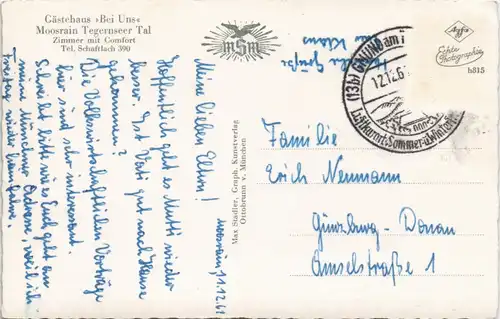 Gästehaus ›Bei Uns‹
Moosrain Tegernseer Tal
Zimmer mit Comfort
Tel. Schaftlach 390
mSm
Agfa
Echte
Photographie
h815
(13b) GMUND am
12.12.6
Luftkurort, Sommer-u.Winter
Max Stadler, Graph. Kunstverlag
Ottobrunn v. München
Moosrain, 11.12.61
Meine lieben Eltern!
Hoffentlich geht es Mutti wieder
besser. Ist Vati gut nach Hause
gekommen?
Die Volkswirtschaftlichen Vorträge
hier sind sehr interessant.
Schreibt bitte wies Euch geht an
meine Münchner Adresse, weil ich
Freitag wieder heimfahre.
Herzliche Grüße
Klaus
Familie
Erich Neumann
Günzburg - Donau
Amselstraße 1